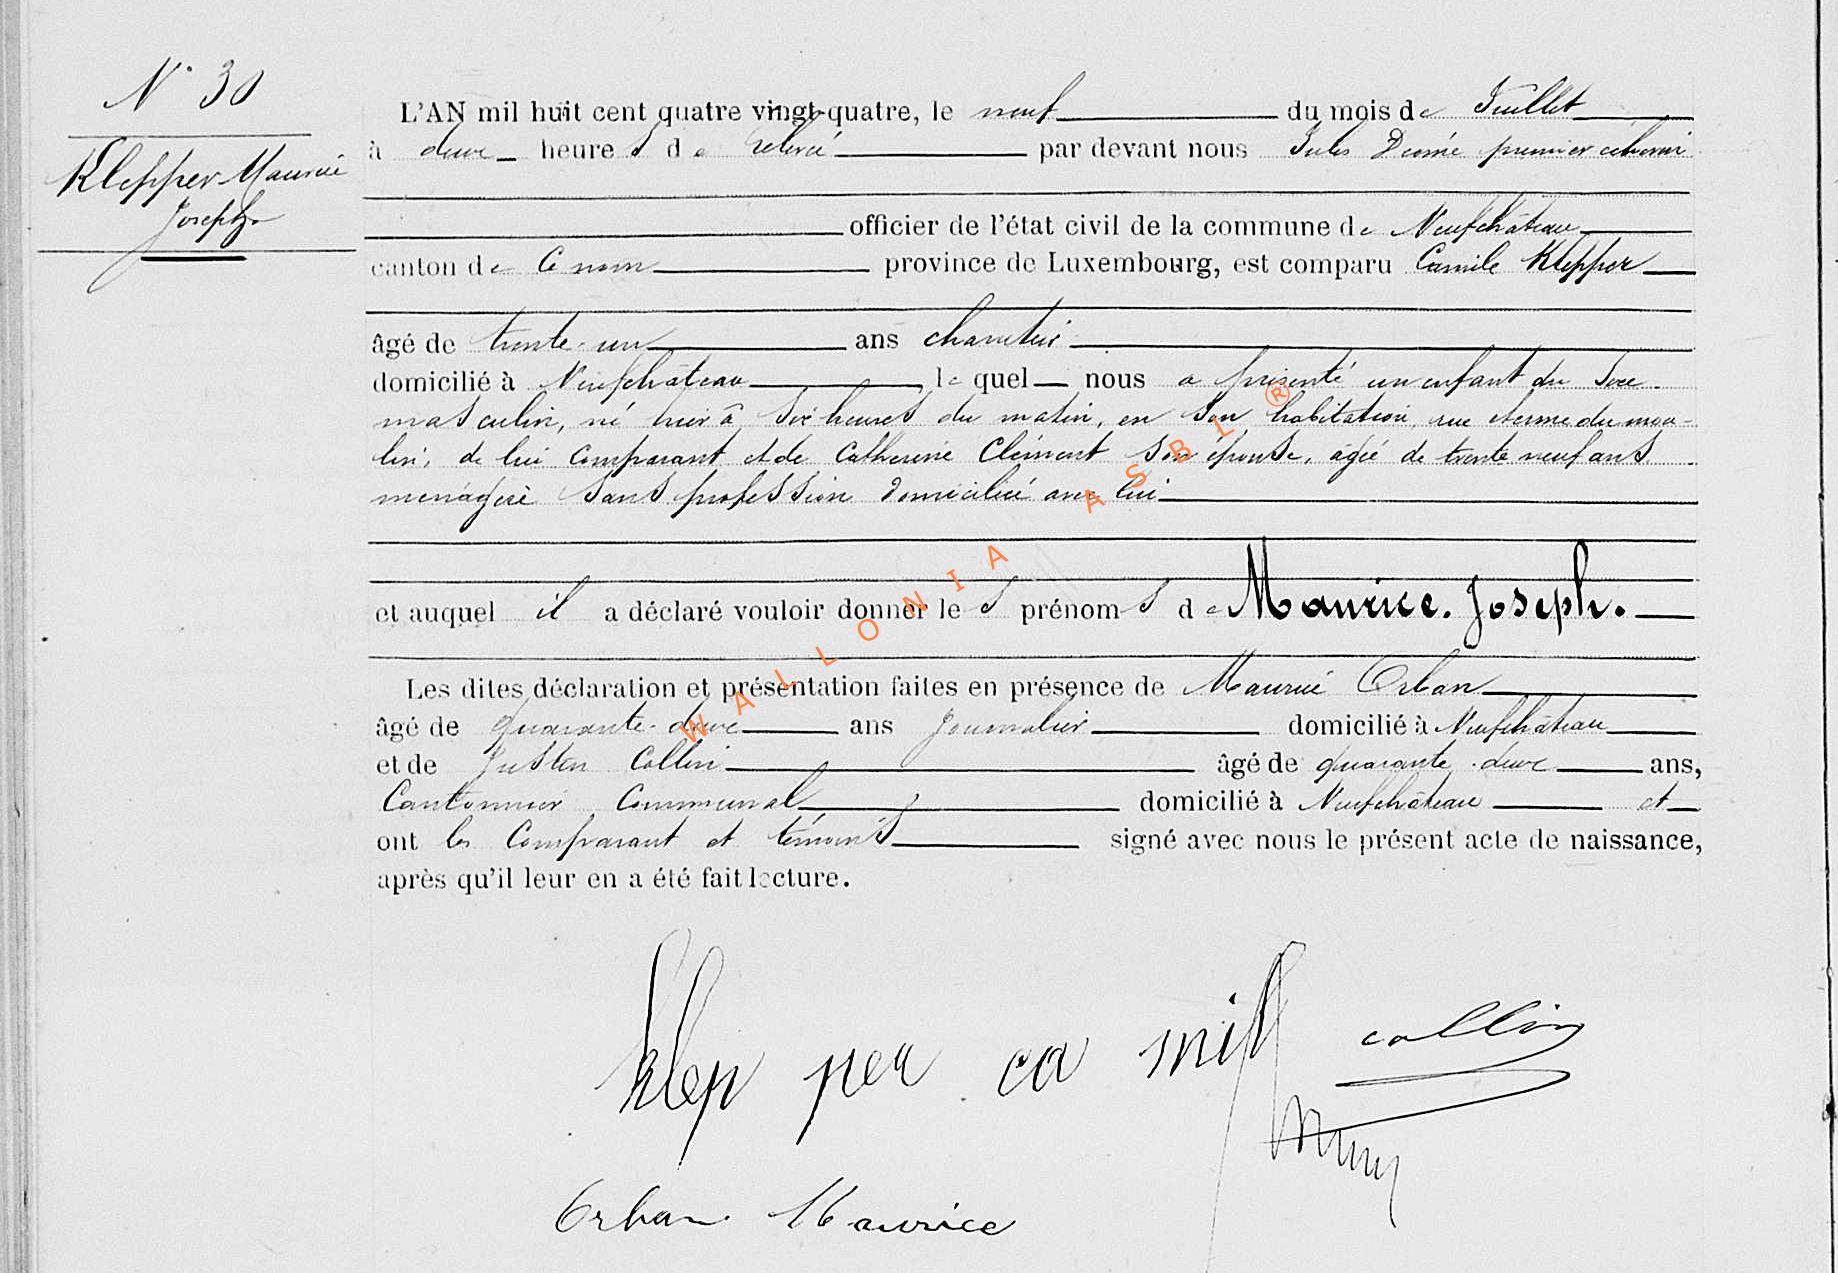 N° 30
Klepper Maurice
Joseph
L'AN mil huit cent quatre vingt-quatre, le neuf du mois de Juillet
à deux heures de relevé par devant nous Jules premier échevin
officier de l'état civil de la commune de Neufchâteau
canton de ce nom province de Luxembourg, est comparu Camile Klepper
âgé de trente-un ans
domicilié à Neufchâteau lequel nous a présenté un enfant du sexe
masculin, né hier à six heures du matin, en son habitation, rue du mou-
lin, de lui comparant et de Catherine Clément son épouse, âgée de trente neuf ans
menagère sans profession domiciliée avec lui
et auquel il a déclaré vouloir donner les prénoms de Maurice. Joseph.
Les dites déclaration et présentation faites en présence de Maurice Orban
âgé de quarante-deux ans journalier domicilié à Neufchâteau
et de Justin Collin âgé de quarante-deux ans,
Cantonnier Communal domicilié à Neufchâteau et
ont les Comparant et témoins signé avec nous le présent acte de naissance,
après qu'il leur en a été fait lecture.
WALLONIA ASBL ®
klep per ca mill
collin
Orban Maurice